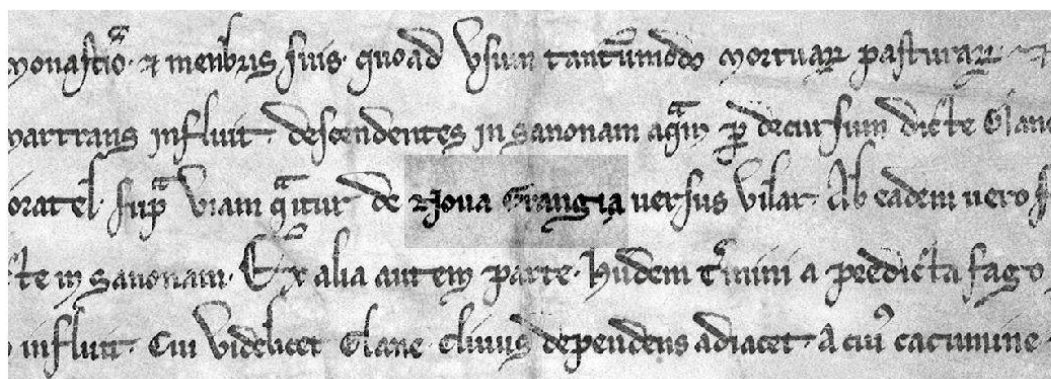 monast̄io · ⁊ menbris suis · quoad Vsum tantūmodo mortuaꝝ pasturaꝝ · ⁊
martrans influit · descendentes in sanonam aqᵃm ꝑ decursum dicte Glane
suᵖᵃ viam qᵃ itur de Noua Grangia uersus vilar · Ab eadem uero
in sanonam · Ex alia autem parte · Hiidem tᵉmini a predicta fago
influit · Cui Videlicet Glane cliuus dependens adiacet · A cuiꝰ cacumine